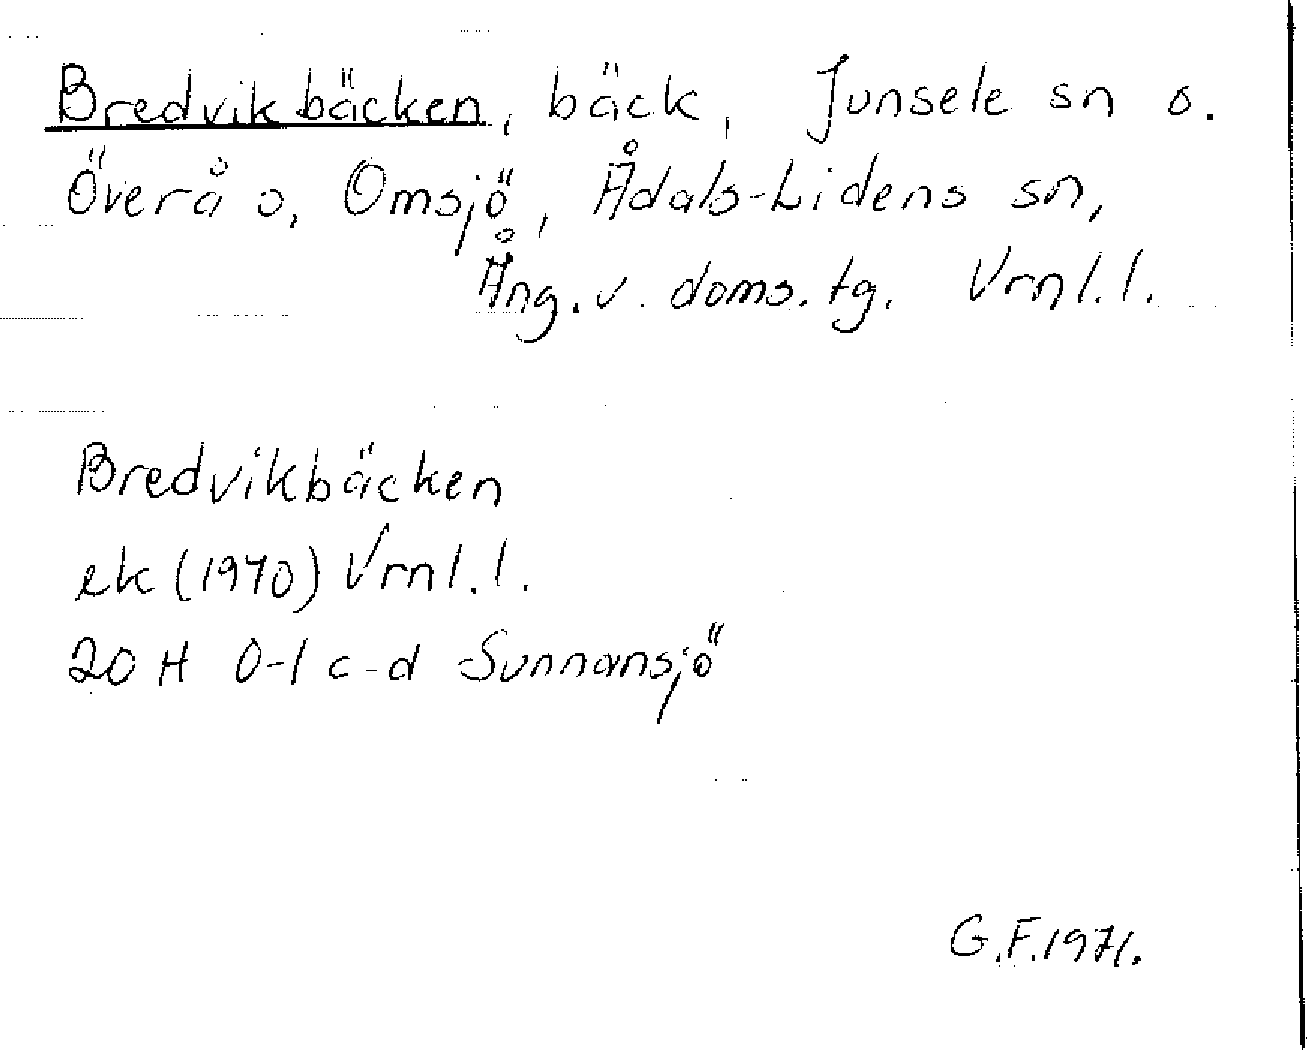 Bredvikbäcken, bäck, Junsele sn o.
Överå o, Omsjö, Ådals-Lidens sn,
Ång. v. doms. tg. Vrnl. l.
Bredvikbäcken
ek (1970) Vrnl. l.
20 H 0-1 c-d Sunnansjö
G.F. 1971.